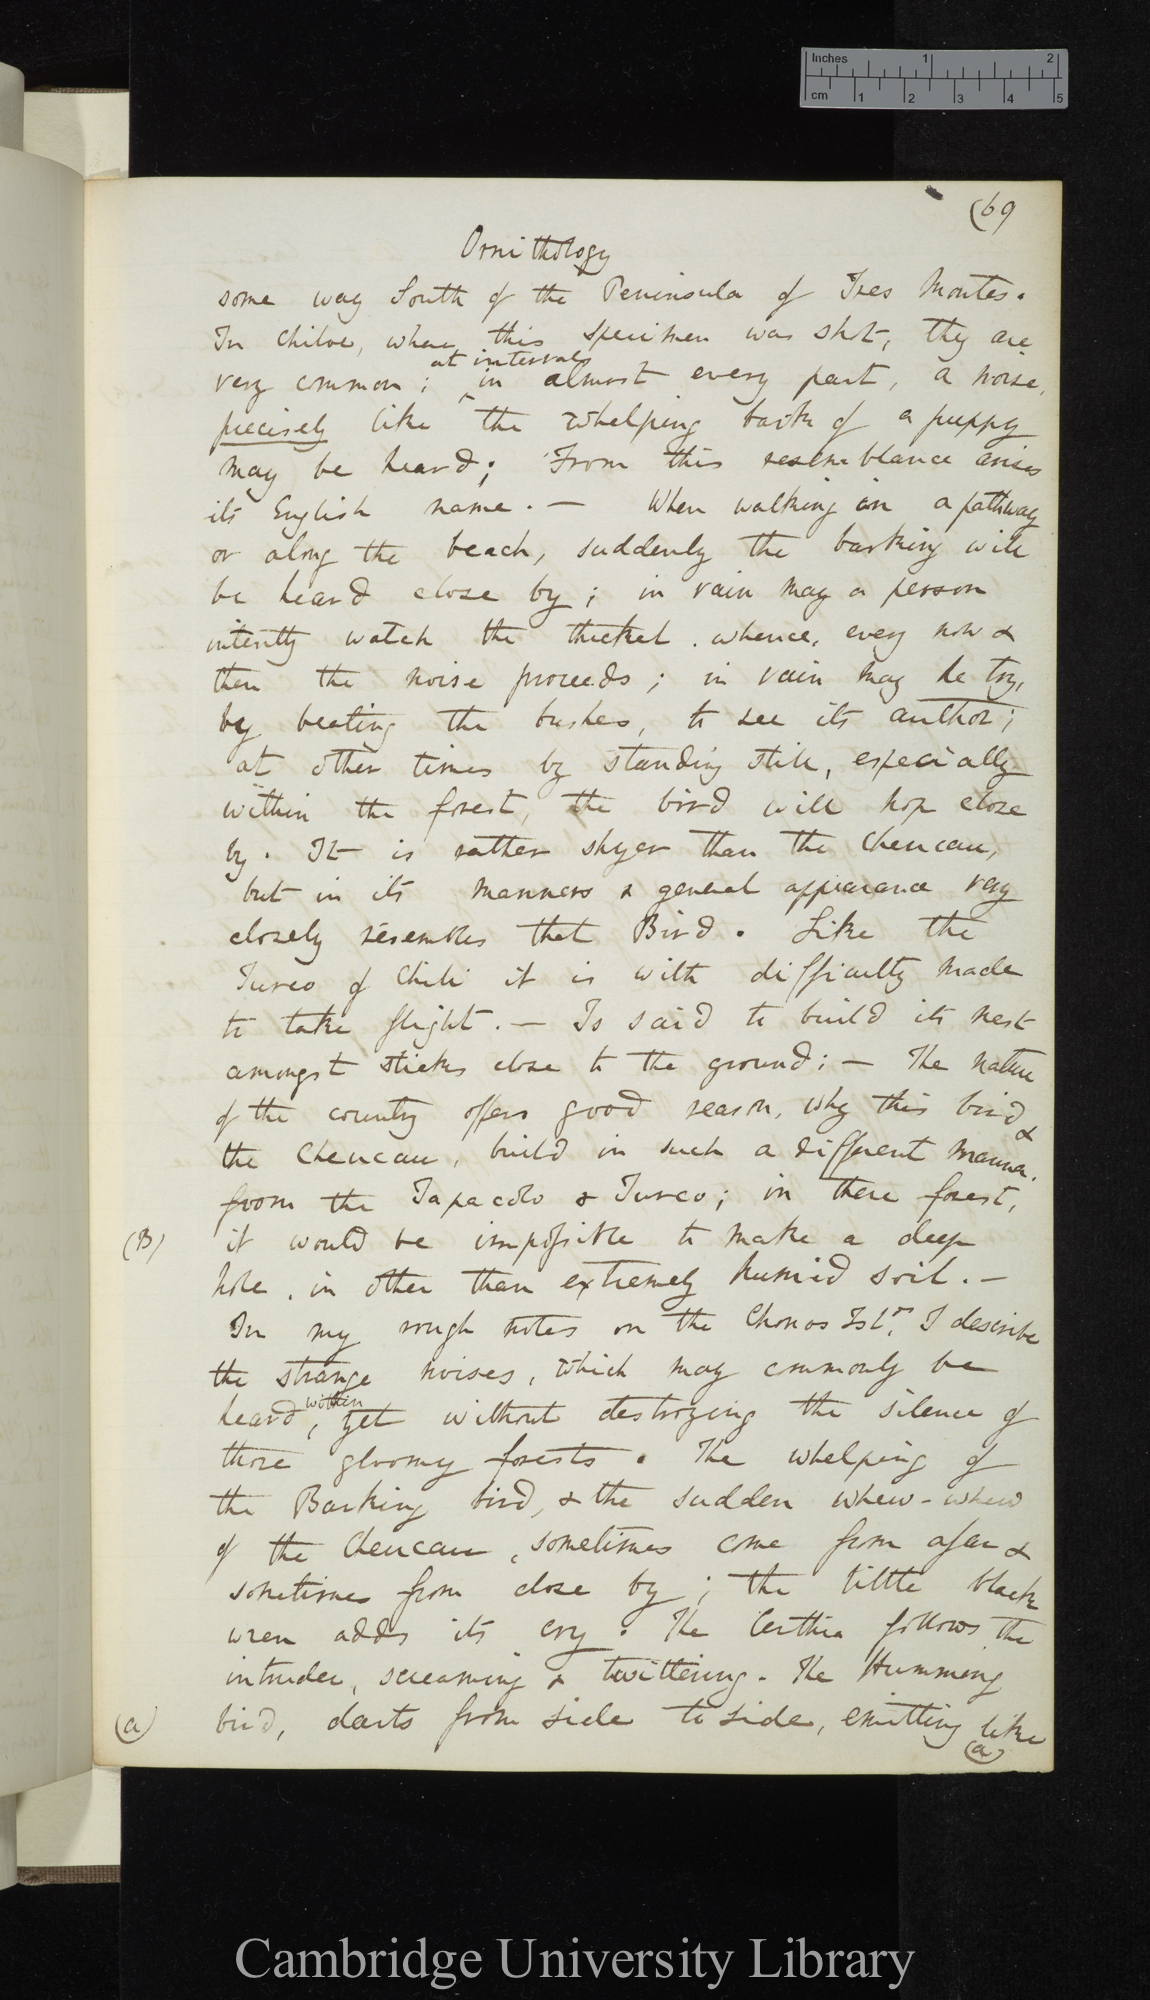 Inches 1 2
cm 1 2 3 4 5
(69
Ornithology
some way South of the Peninsula of Tres Montes.
In Chiloe, where this specimen was shot, they are
at intervals
very common; ^ in almost every part, a noise,
precisely like the whelping bark of a puppy
may be heard; From this resemblance arises
its English name. — When walking on a pathway
or along the beach, suddenly the barking will
be heard close by; in vain may a person
intently watch the thicket, whence, every now &
then the noise proceeds; in vain may he try,
by beating the bushes, to see its author;
at other times by standing still, especially
within the forest, the bird will hop close
by. It is rather shyer than the Cheucau,
but in its manners & general appearance very
closely resembles that Bird. Like the
Turco of Chili it is with difficulty made
to take flight. — Is said to build its nest
amongst sticks close to the ground; — The nature
of the country offers good reason, why this bird &
the Cheucau, build in such a different manner
from the Tapacolo & Turco; in these forest,
(B) it would be impossible to make a deep
hole, in other than extremely humid soil. —
In my rough notes on the Chonos Isds, I describe
the strange noises, which may commonly be
within
heard, yet without destroying the silence of
those gloomy forests. The whelping of
the Barking bird, & the sudden whew-whew
of the Cheucau, sometimes come from afar &
sometimes from close by; the little black
wren adds its cry. The Certhia follows the
intruder, screaming & twittering. The Humming
(a) bird, darts from side to side, emitting like
(a)
Cambridge University Library